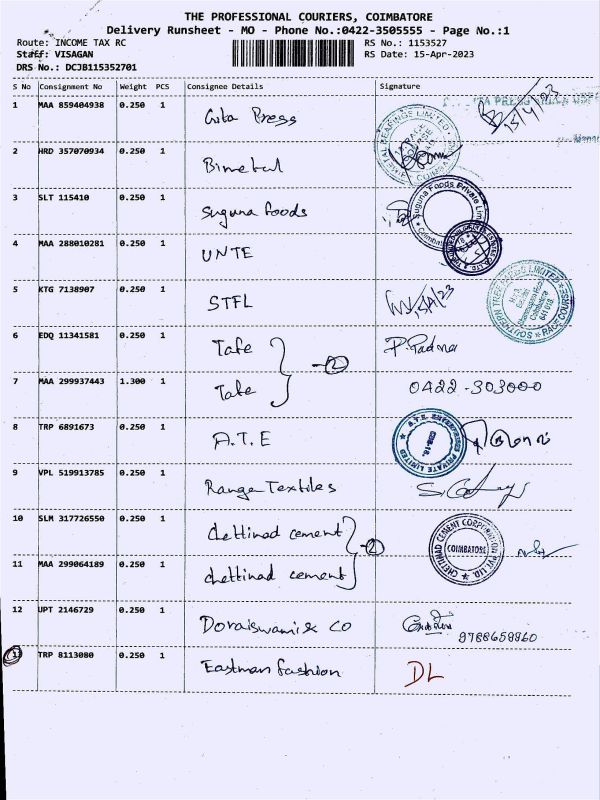 THE PROFESSIONAL COURIERS, COIMBATORE
Delivery Runsheet - MO - Phone No.:0422-3505555 - Page No.:1
Route: INCOME TAX RC
RS No.: 1153527
Staff: VISAGAN
RS Date: 15-Apr-2023
DRS No.: DCJB115352701
S No Consignment No Weight PCS Consignee Details Signature
1 MAA 859404938 0.250 1 Gita Press 15/4/23
2 HRD 357070934 0.250 1 Bimetal
3 SLT 115410 0.250 1 Suguna foods
Suguna Foods Private Limited
Coimbatore
4 MAA 288010281 0.250 1 UNTE
5 KTG 7138907 0.250 1 STFL
SOUTHERN TREE FARMS LIMITED
RACE COURSE
Coimbatore
641 018.
6 EDQ 11341581 0.250 1 Tafe (2) P. Padma
7 MAA 299937443 1.300 1 Tafe 0422-303000
8 TRP 6891673 0.250 1 A.T.E
A.T.E. ENTERPRISES PRIVATE LIMITED
CBE-18.
9 VPL 519913785 0.250 1 Range Textiles
10 SLM 317726550 0.250 1 chettinad cement (2)
CHETTINAD CEMENT CORPORATION PVT. LTD.
COIMBATORE
11 MAA 299064189 0.250 1 chettinad cement
12 UPT 2146729 0.250 1 Doraiswami & CO
9788659860
13 TRP 8113080 0.250 1 Eastman fashion DL